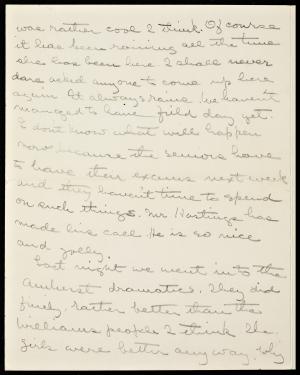 was rather cool I think. Of course
it has been raining all the time
she has been here I shall never
dare asked anyone to come up here
again It always rains. We haven't
managed to have field day yet.
I don't know what will happen
now because the seniors have
to have their exams next week
and they haven't time to spend
on such things. Mr. Hastings has
made his call He is so nice
and jolly.
Last night we went in to the
Amherst dramatics. They did
finely, rather better than the
Williams people I think The
girls were better any way. Why